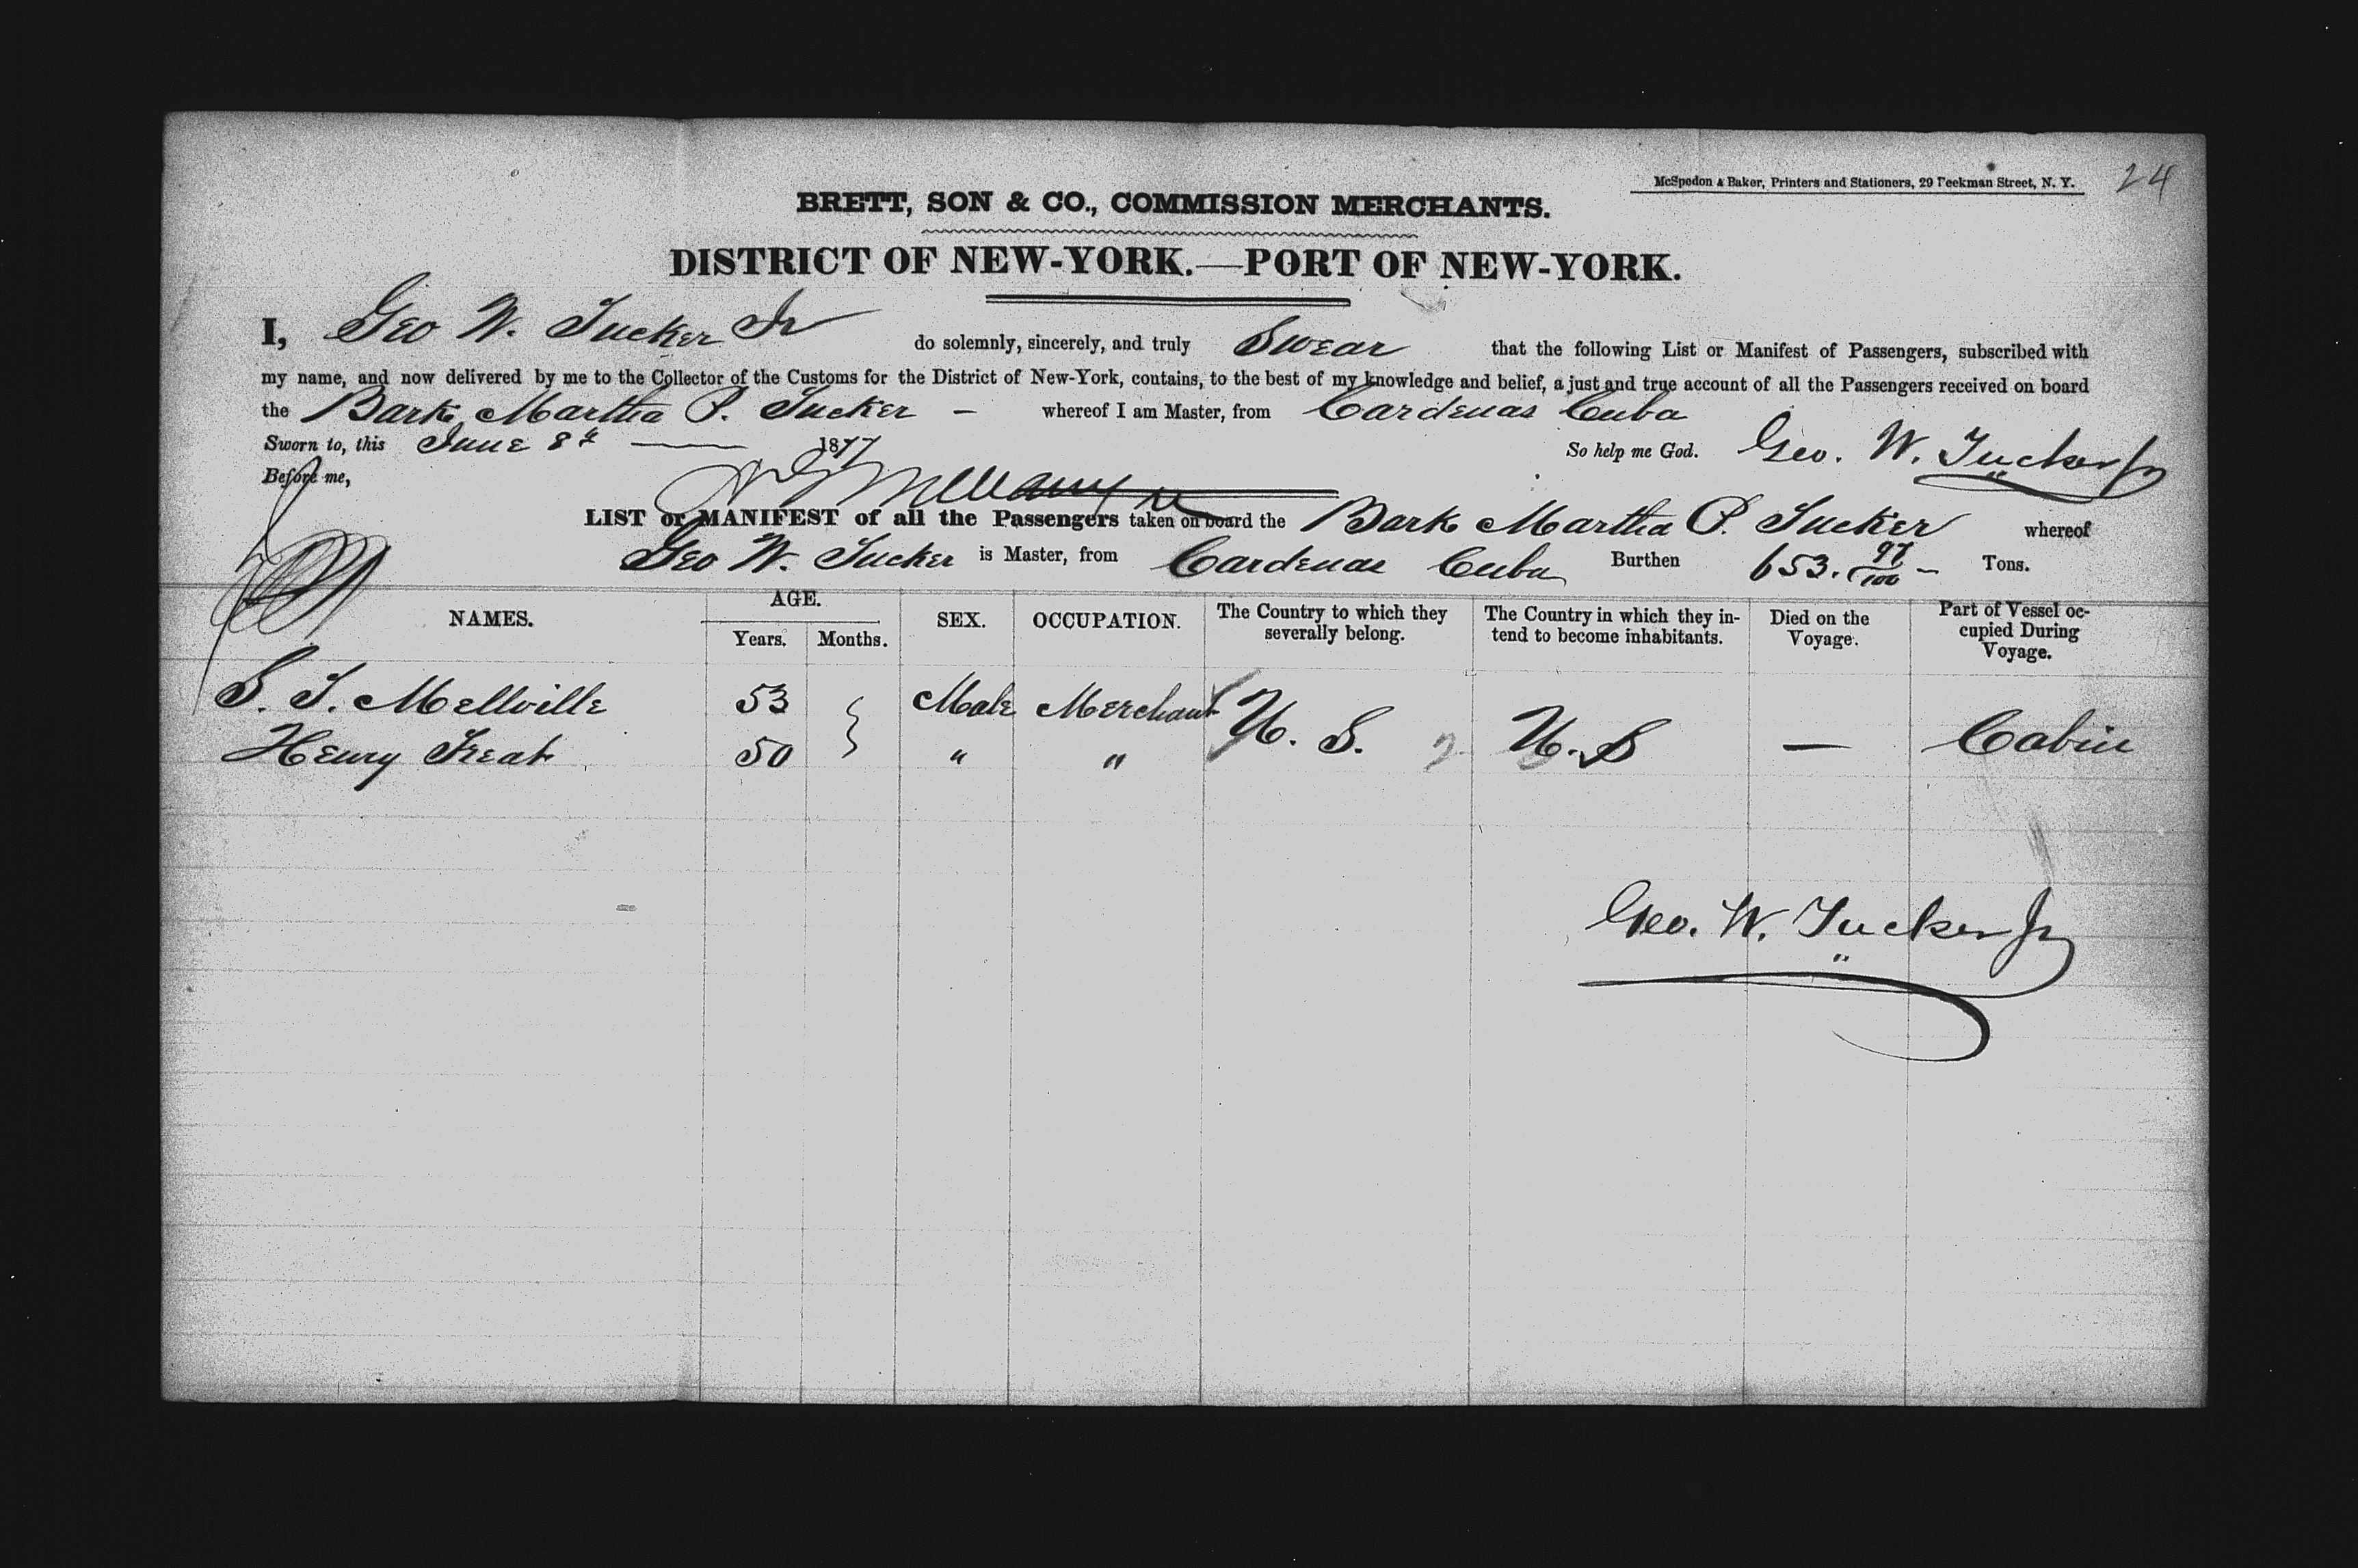 McSpedon & Baker, Printers and Stationers, 29 Beekman Street, N. Y.
24
BRETT, SON & CO., COMMISSION MERCHANTS.
DISTRICT OF NEW-YORK.—PORT OF NEW-YORK.
I, Geo W. Tucker Jr do solemnly, sincerely, and truly Swear that the following List or Manifest of Passengers, subscribed with
my name, and now delivered by me to the Collector of the Customs for the District of New-York, contains, to the best of my knowledge and belief, a just and true account of all the Passengers received on board
the Bark Martha P. Tucker – whereof I am Master, from Cardenas Cuba
Sworn to, this June 8th — 1877 So help me God. Geo. W. Tucker Jr
Before me,
LIST or MANIFEST of all the Passengers taken on board the Bark Martha P. Tucker whereof
Geo W. Tucker is Master, from Cardenas Cuba Burthen 653. 97/100 – Tons.
NAMES. AGE. Years. Months. SEX. OCCUPATION. The Country to which they severally belong. The Country in which they intend to become inhabitants. Died on the Voyage. Part of Vessel occupied During Voyage.
S. T. Mellville 53 Male Merchant U. S. 2 U. S — Cabin
Henry Treat 50 " "
Geo. W. Tucker Jr